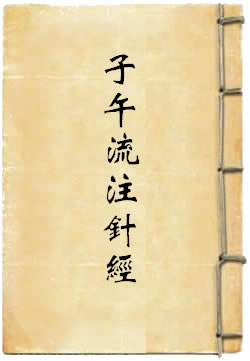 子午流注針經